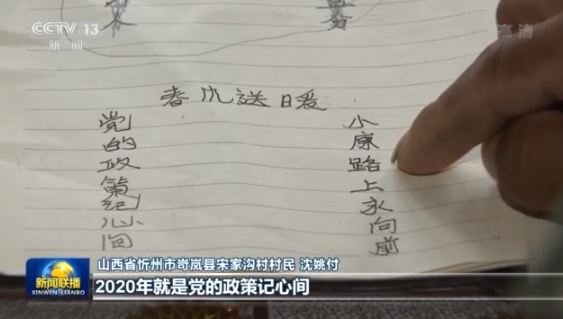 CCTV 13
新闻
高清
春风送暖
小康路上永向前
党的政策记心间
新闻联播
XINWEN LIANBO
山西省忻州市岢岚县宋家沟村村民 沈姚付
2020年就是党的政策记心间